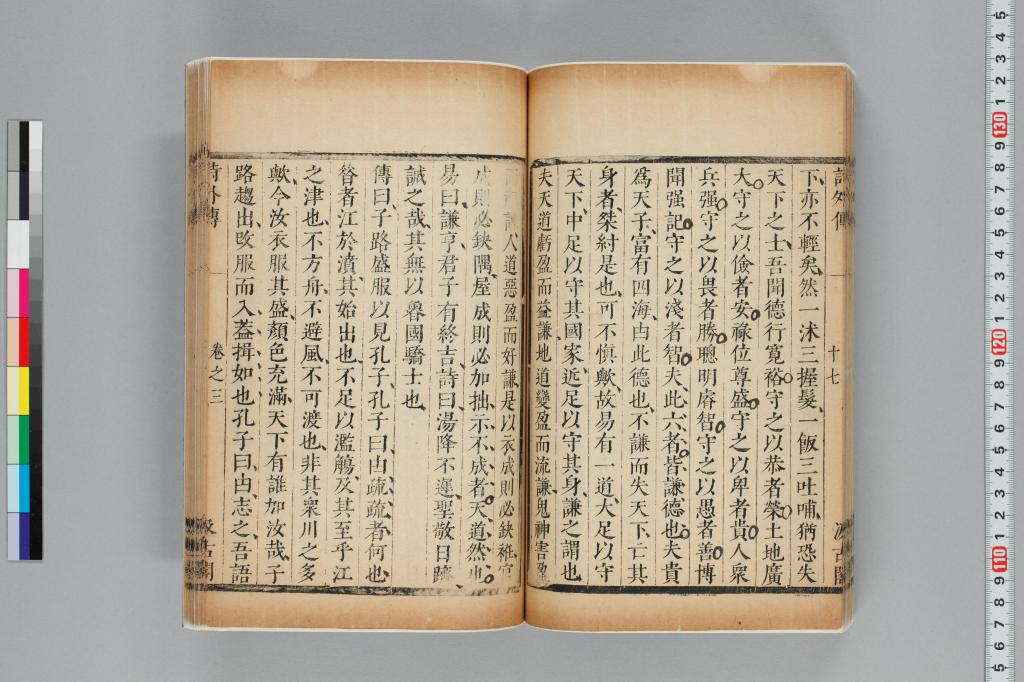 詩外傳
十七
汲古閣
下亦不輕矣然一沐三握髮一飯三吐哺猶恐失
天下之士吾聞德行寬裕守之以恭者榮土地廣
大守之以儉者安祿位尊盛守之以卑者貴人衆
兵强守之以畏者勝聰明睿智守之以愚者善博
聞强記守之以淺者智夫此六者皆謙德也夫貴
爲天子富有四海由此德也不謙而失天下亡其
身者桀紂是也可不愼歟故易有一道大足以守
天下中足以守其國家近足以守其身謙之謂也
夫天道虧盈而益謙地道變盈而流謙鬼神害盈
而福謙人道惡盈而好謙是以衣成則必缺袵宮
成則必缺隅屋成則必加拙示不成者天道然也
易曰謙亨君子有終吉詩曰湯降不遲聖敬日躋
誡之哉其無以魯國驕士也
傳曰子路盛服以見孔子孔子曰由疏疏者何也
昝者江於濆其始出也不足以濫觴及其至乎江
之津也不方舟不避風不可渡也非其衆川之多
歟今汝衣服其盛顏色充滿天下有誰加汝哉子
路趨出改服而入蓋揖如也孔子曰由志之吾語
詩外傳
卷之三
汲古閣